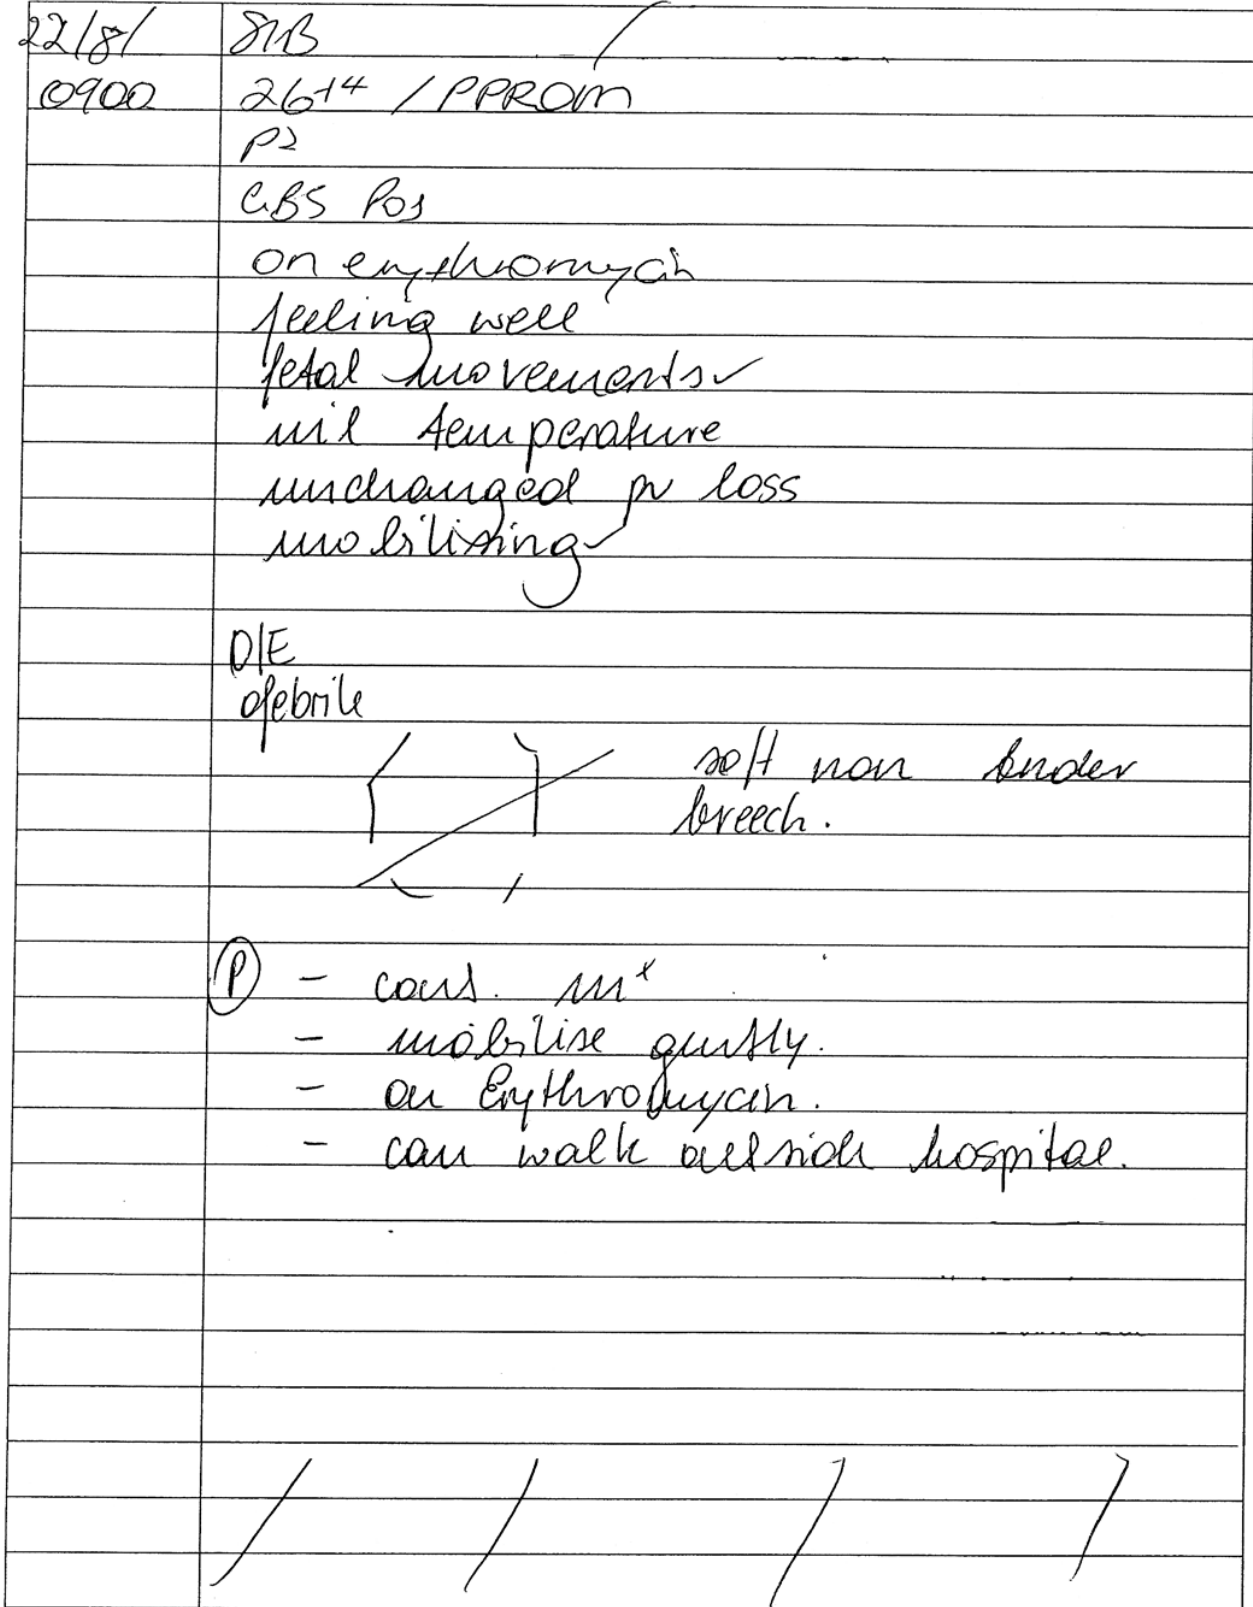 22/8/ S/B /
0900 26+4 / PPROM
P2
GBS Pos
on erythromycin
feeling well
fetal movements ✓
nil temperature
unchanged pv loss
mobilising ✓
O/E
afebrile
soft non tender
breech.
(P) - cons. mx
- mobilise gently.
- on Erythromycin.
- can walk outside hospital.